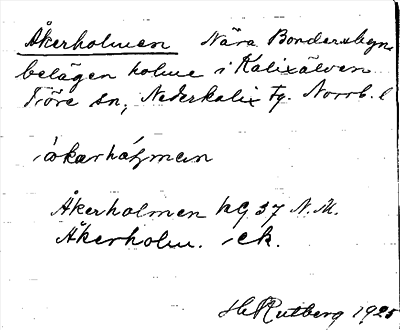 Åkerholmen Nära Bondersbyn
belägen holme i Kalixälven
Töre sn, Nederkalix Tg. Norrb. l
Åkerholmen kg 37 N. M.
Åkerholm. ek.
H Rutberg 1925